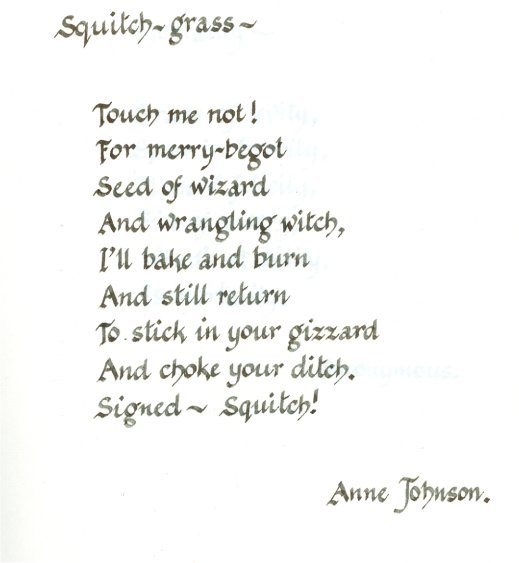 Squitch~grass~
Touch me not!
For merry-begot
Seed of wizard
And wrangling witch,
I'll bake and burn
And still return
To stick in your gizzard
And choke your ditch.
Signed~ Squitch!
Anne Johnson.